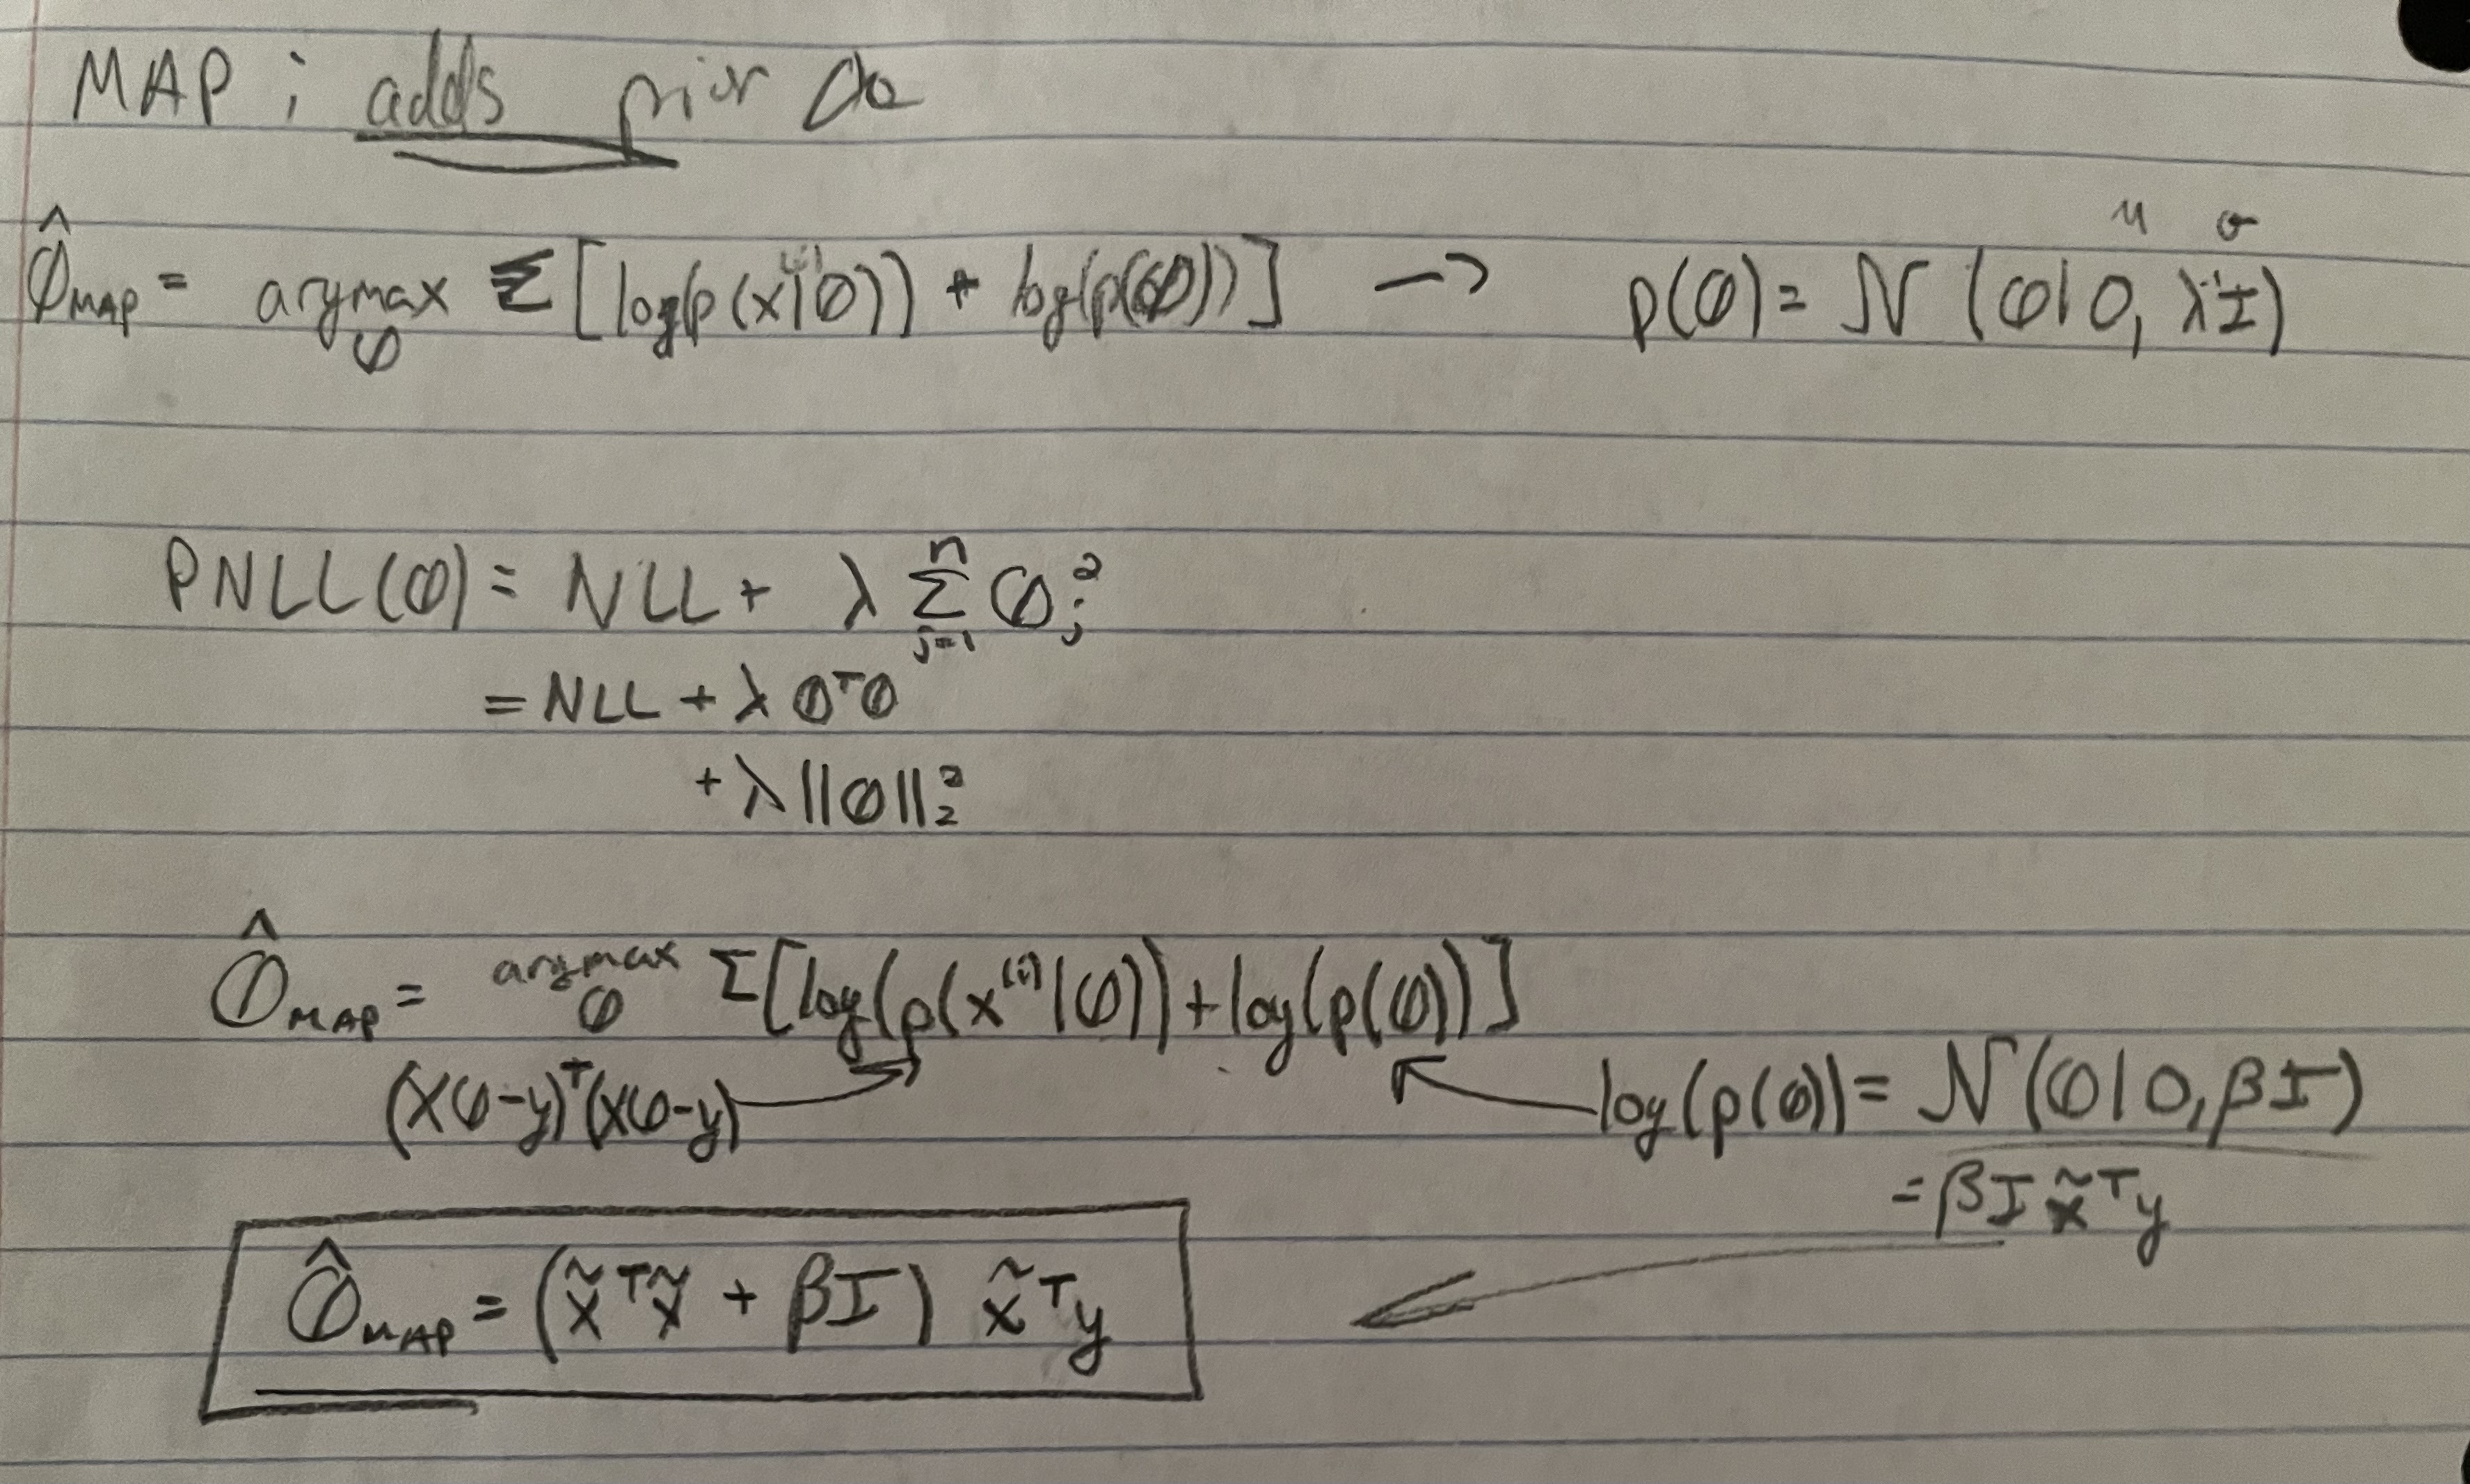 MAP : adds prior
θ̂_MAP = argmax_θ Σ [log(p(x^(i)|θ)) + log(p(θ))] → p(θ) = N(θ|0, λ⁻¹I)
μ σ
PNLL(θ) = NLL + λ Σ_{j=1}^{n} θ_j^2
= NLL + λ θ^T θ
+ λ ||θ||_2^2
θ̂_MAP = argmax_θ Σ[log(p(x^(i)|θ)) + log(p(θ))]
(Xθ-y)^T(Xθ-y) log(p(θ)) = N(θ|0, βI)
= βI x̃^T y
θ̂_MAP = (x̃^T x̃ + βI) x̃^T y